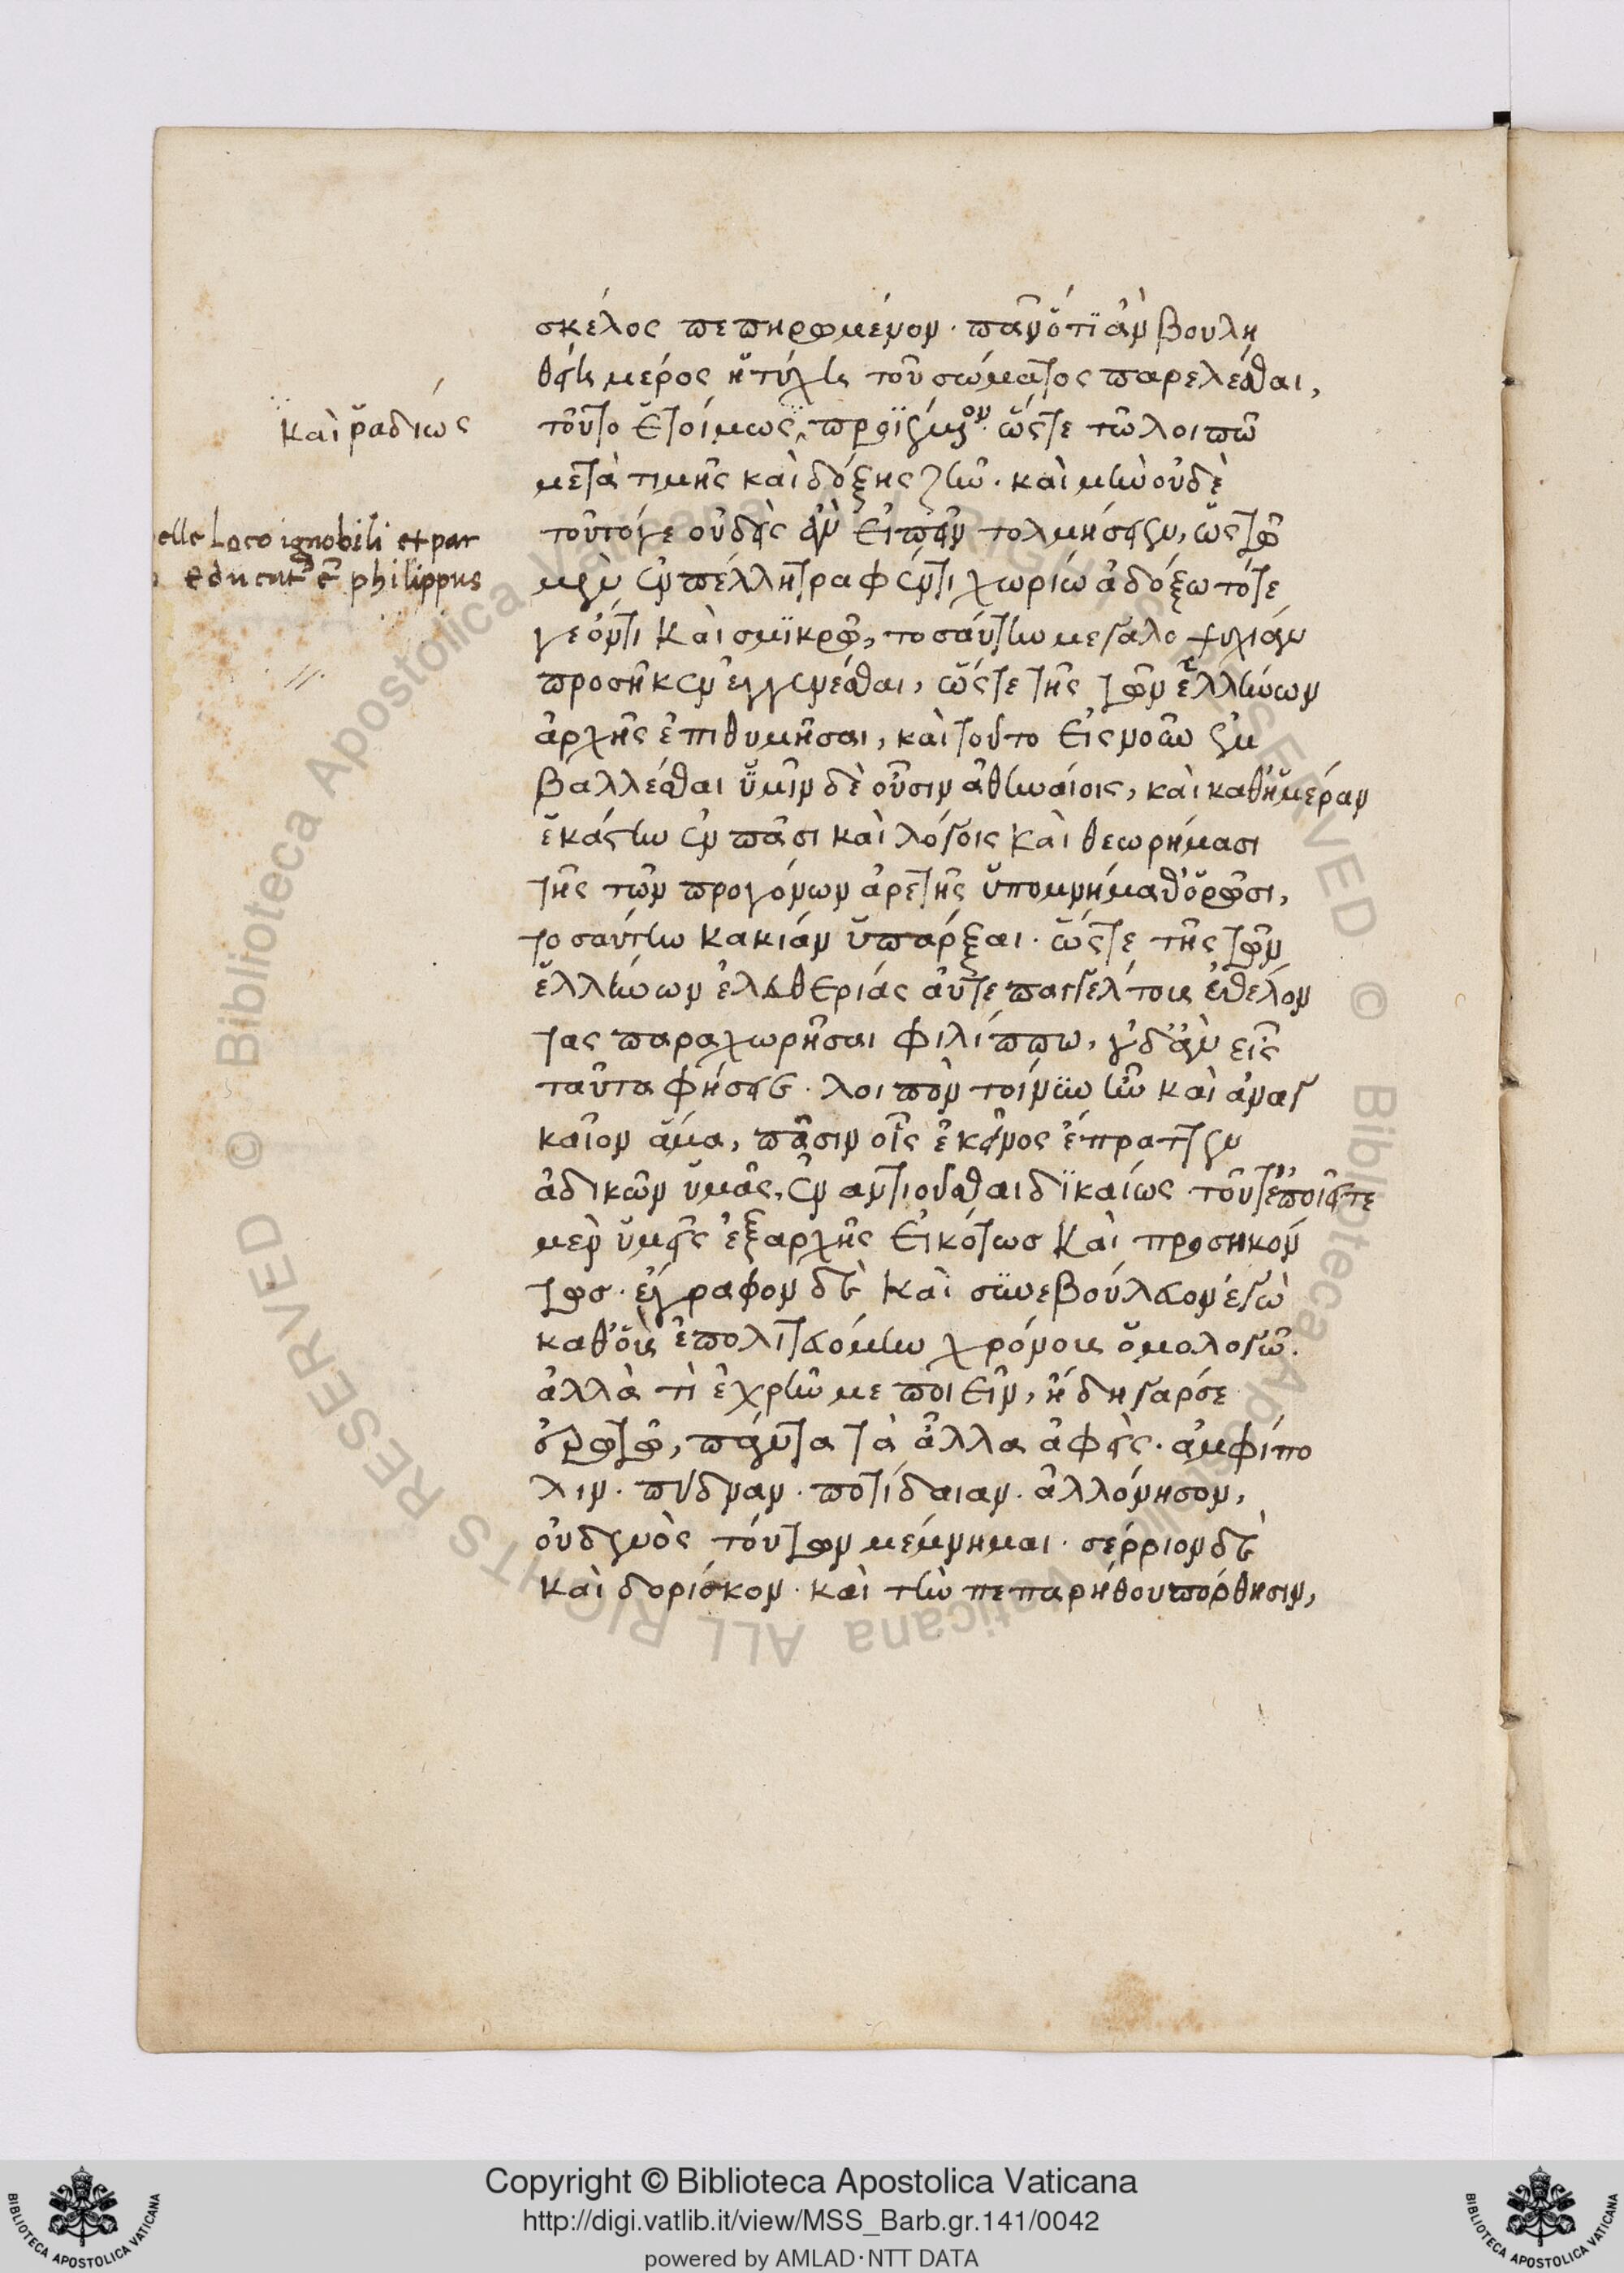 σκέλος πεπηρωμένον · πᾶν ὅτι ἂν βουλη
θείη μέρος ἡ τύχη τοῦ σώματος παρελέσθαι,
καὶ ῥαδίως
τοῦτο ἑτοίμως προϊέμενον · ὥστε τῷ λοιπῷ
μετὰ τιμῆς καὶ δόξης ζῆν · καὶ μὴν οὐδὲ
pelle Loco ignobili et par
educatꝰ ẽ philippus
τοῦτό γε οὐδεὶς ἂν εἰπεῖν τολμήσειεν, ὡς τῷ
μὲν ἐν πέλλη τραφέντι χωρίω ἀδόξω τότε
γε ὄντι καὶ σμικρῷ, τοσαύτην μεγαλοψυχίαν
προσῆκεν ἐγγενέσθαι, ὥστε τῆς τῶν ἑλλήνων
ἀρχῆς ἐπιθυμῆσαι, καὶ τοῦτο εἰς νοῦν ἐμ
βαλλέσθαι ὑμῖν δὲ οὖσιν ἀθηναίοις, καὶ καθ' ἡμέραν
ἑκάστην ἐν πᾶσι καὶ λόγοις καὶ θεωρήμασι
τῆς τῶν προγόνων ἀρετῆς ὑπομνήμαθ' ὁρῶσι,
τοσαύτην κακίαν ὑπάρξαι · ὥστε τῆς τῶν
ἑλλήνων ἐλευθερίας αὐτεπαγγέλτους ἐθελόν
τας παραχωρῆσαι φιλίππω, οὐδ' ἂν εἷς
ταῦτα φήσειε · λοιπὸν τοίνυν ἦν καὶ ἀναγ
καῖον ἅμα, πᾶσιν οἷς ἐκεῖνος ἔπραττεν
ἀδικῶν ὑμᾶς, ἐναντιοῦσθαι δικαίως · τοῦτ' ἐποιεῖτε
μὲν ὑμεῖς ἐξαρχῆς εἰκότωσ καὶ προσηκόν
τωσ · ἔγραφον δὲ καὶ συνεβούλευον ἐγὼ
καθ' οὓς ἐπολιτευόμην χρόνους ὁμολογῶ.
ἀλλὰ τὶ ἐχρῆν με ποιεῖν, ἤδη γάρ σε
ἐρωτῶ, πάντα τὰ ἄλλα ἀφεὶς · ἀμφίπο
λιν · πύδναν · ποτίδαιαν · ἀλλόνησον,
οὐδενὸς τούτων μέμνημαι · σέρριον δὲ
καὶ δορίσκον · καὶ τὴν πεπαρήθου πόρθησιν,
Copyright © Biblioteca Apostolica Vaticana
http://digi.vatlib.it/view/MSS_Barb.gr.141/0042
powered by AMLAD·NTT DATA